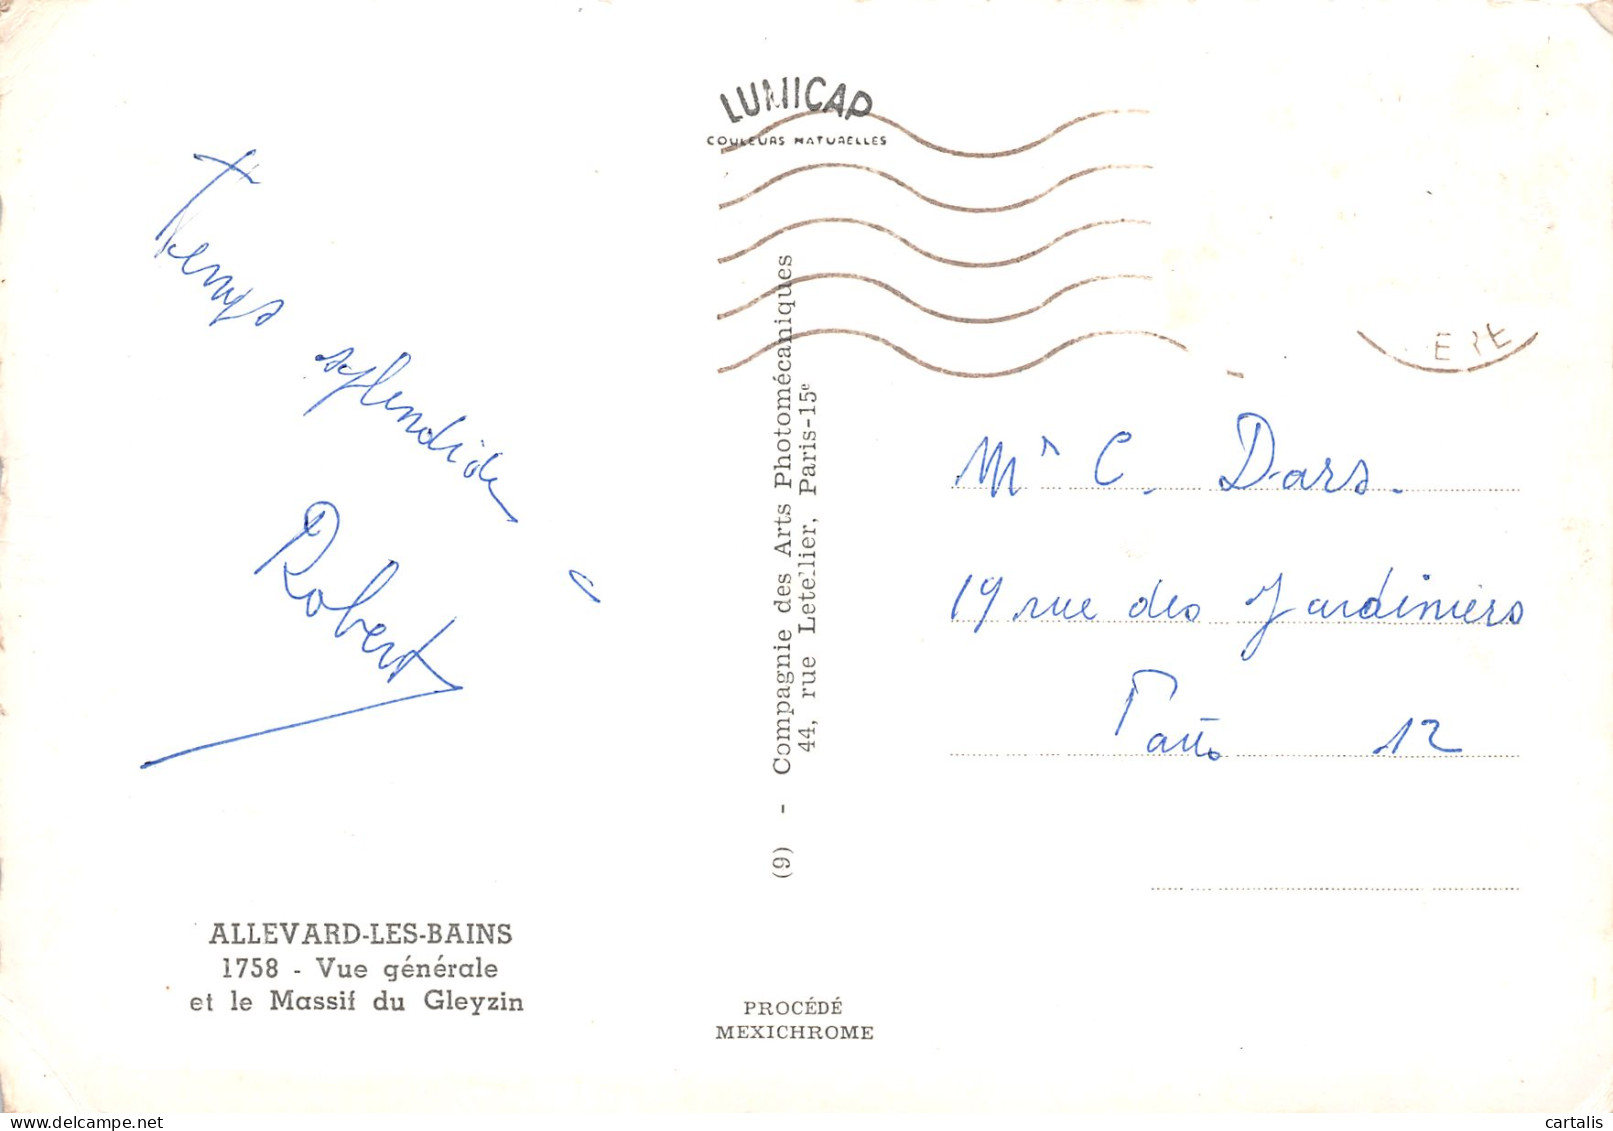 LUMICAP
COULEURS NATURELLES
Temps
splendide
Robert
(9) - Compagnie des Arts Photomécaniques
44, rue Letellier, Paris-15e
Mr C. Dars.
19 rue des Jardiniers
Paris 12
ALLEVARD-LES-BAINS
1758 - Vue générale
et le Massif du Gleyzin
PROCÉDÉ
MEXICHROME
www.delcampe.net
cartalis